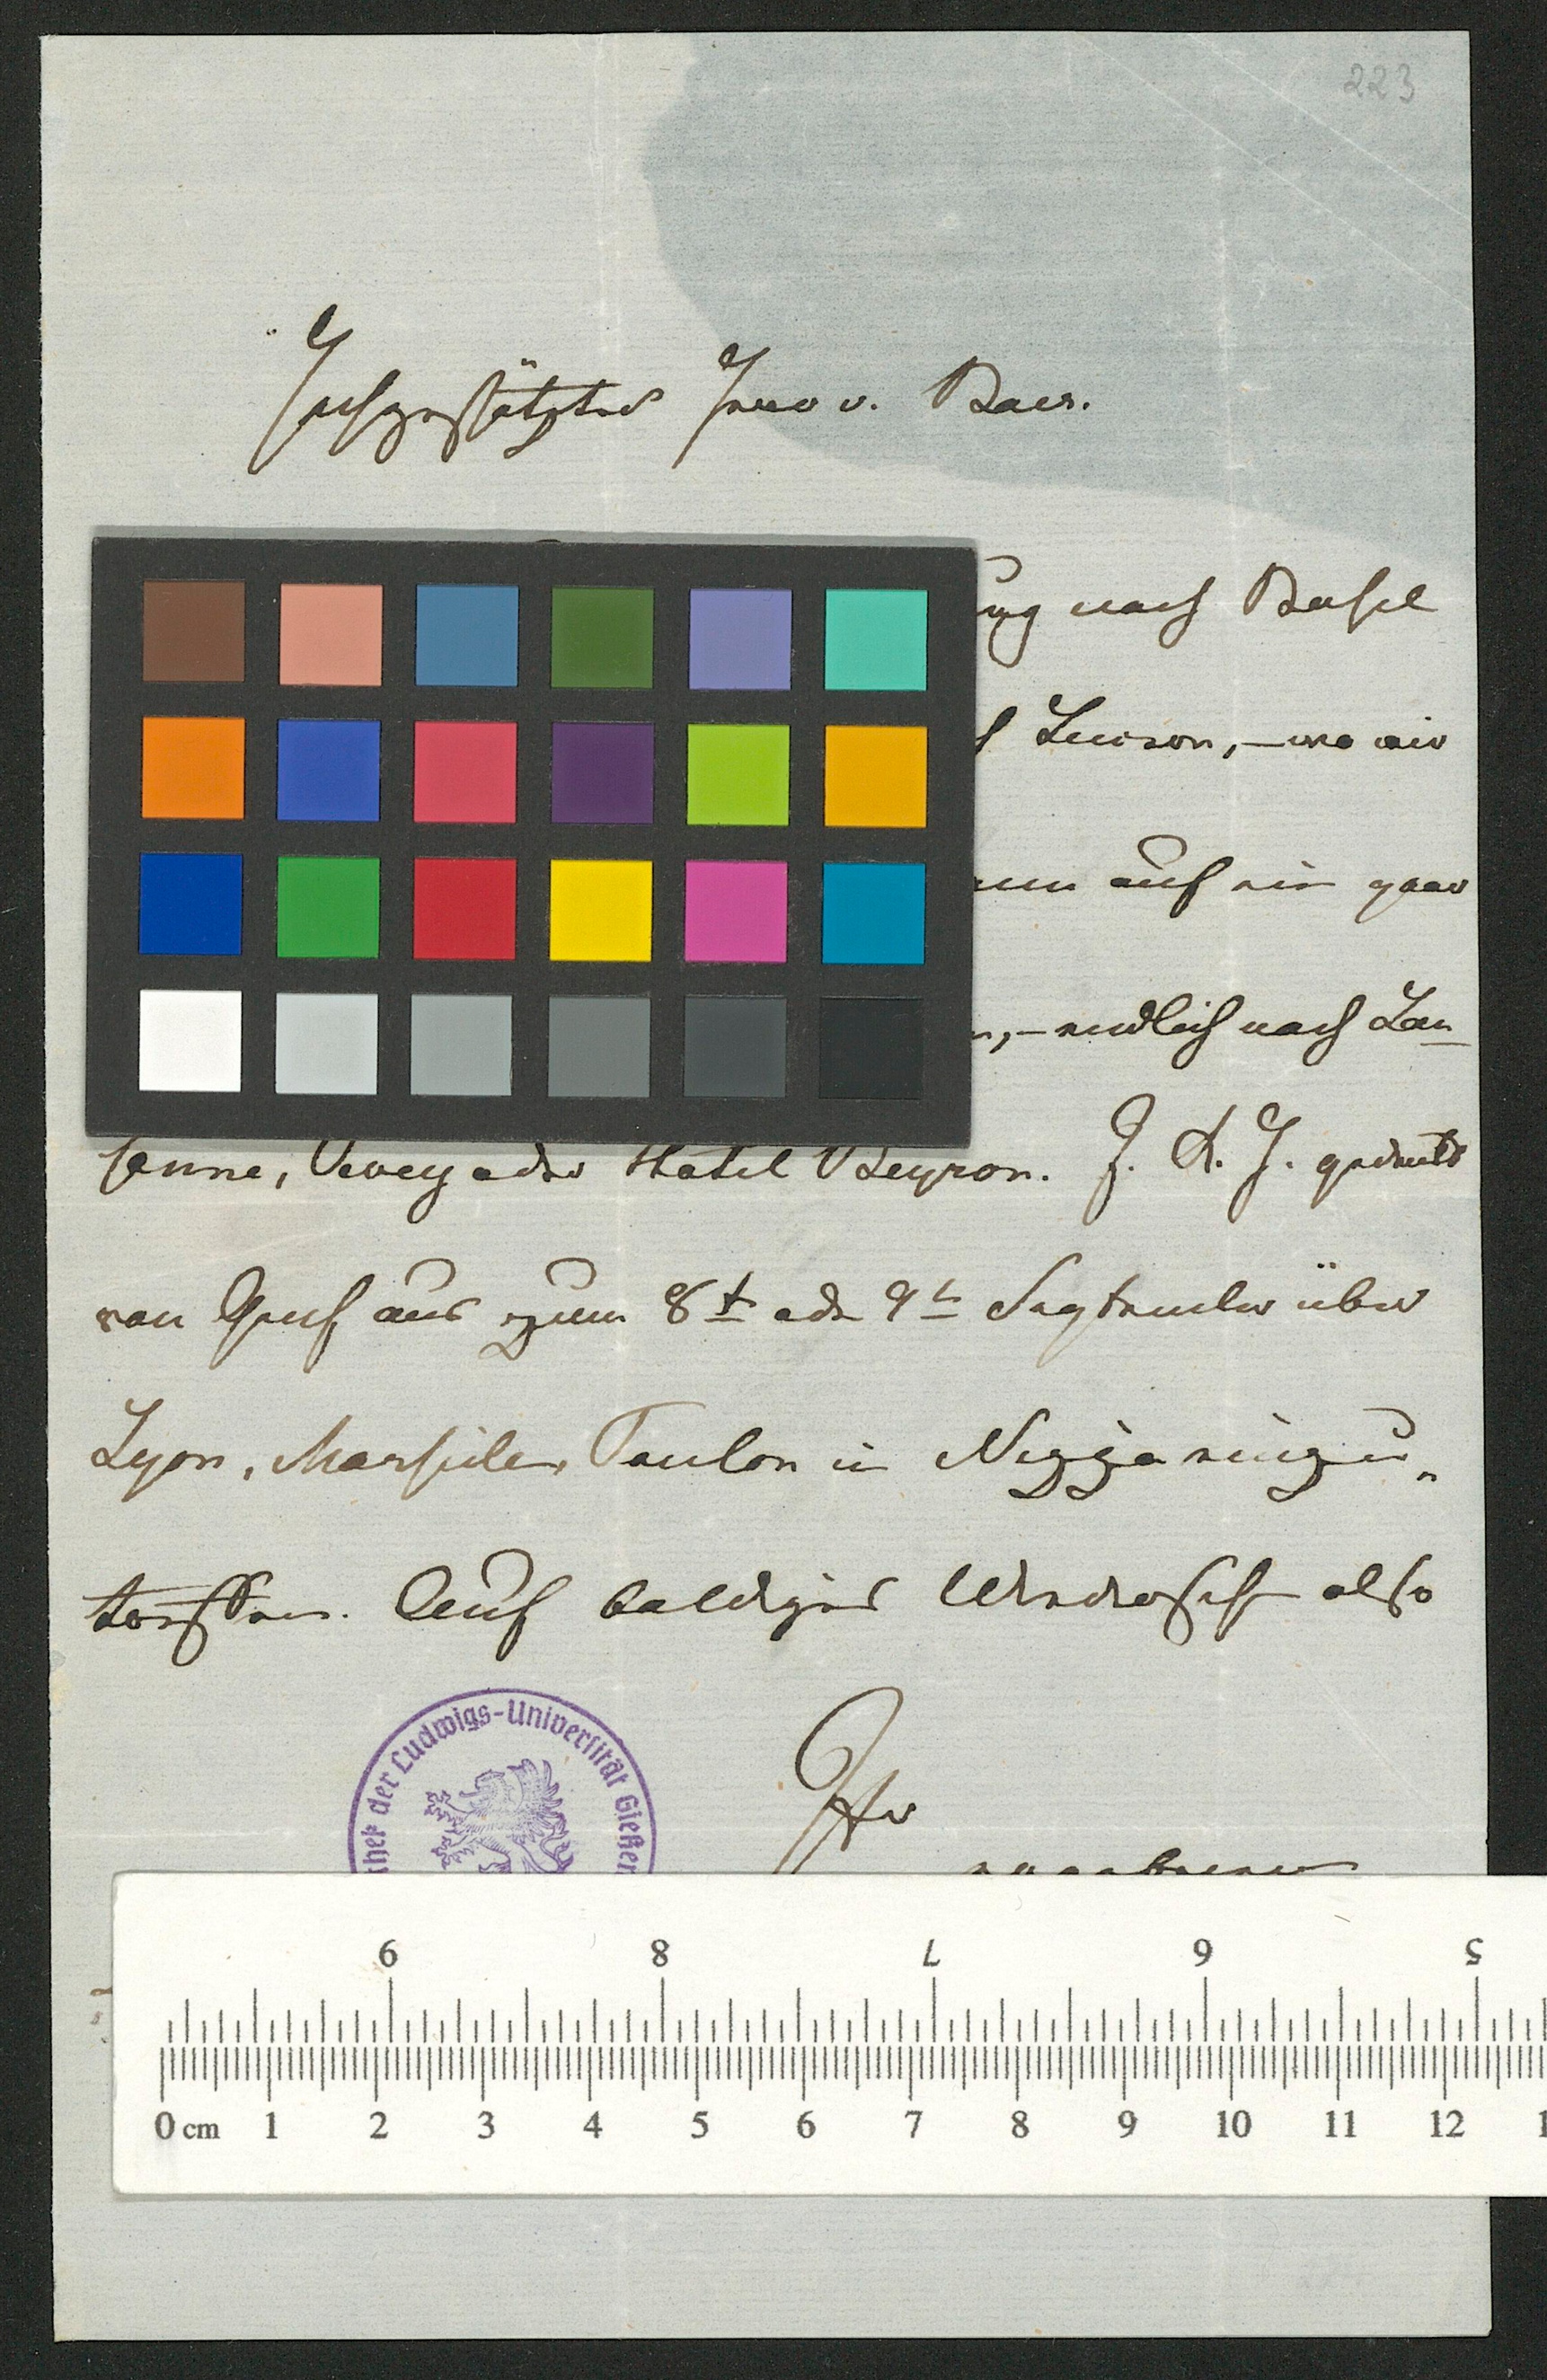 223
Hochgeschätzter Herr v. Baer.
nach Basel
Luzern, – wo wir
auf ein paar
, – endlich nach Lau
sanne, Vevey oder Hotel Beyron. J. K. H. gedenkt
von Genf aus zum 8t oder 9t September über
Lyon, Marseille, Toulon in Nizza einzu„
treffen. Auf baldiges Wiedersehen also
Ihr
ergebener
thek der Ludwigs-Universität Gießen
9 8 7 6 5
0 cm 1 2 3 4 5 6 7 8 9 10 11 12